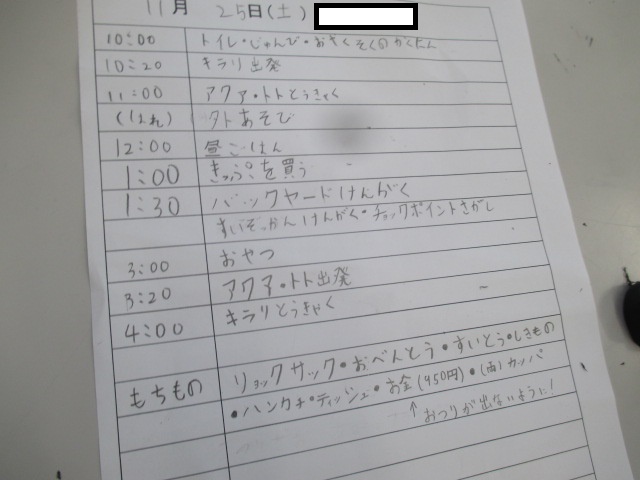 11月 25日(土)
10:00 トイレ・じゅんび・おやくそくのかくにん
10:20 キラリ出発
11:00 アクア・トトとうちゃく
(1人れ) 外あそび
12:00 昼ごはん
1:00 きっぷを買う
1:30 バックヤードけんがく
すいぞっかんけんがく・チェックポイントさがし
3:00 おやつ
3:20 アクア・トト出発
4:00 キラリとうちゃく
もちもの リュックサック・おべんとう・すいとう・しきもの
・ハンカチ・ティッシュ・お金(450円)・(雨)カッパ
↑おつりが出ないように!